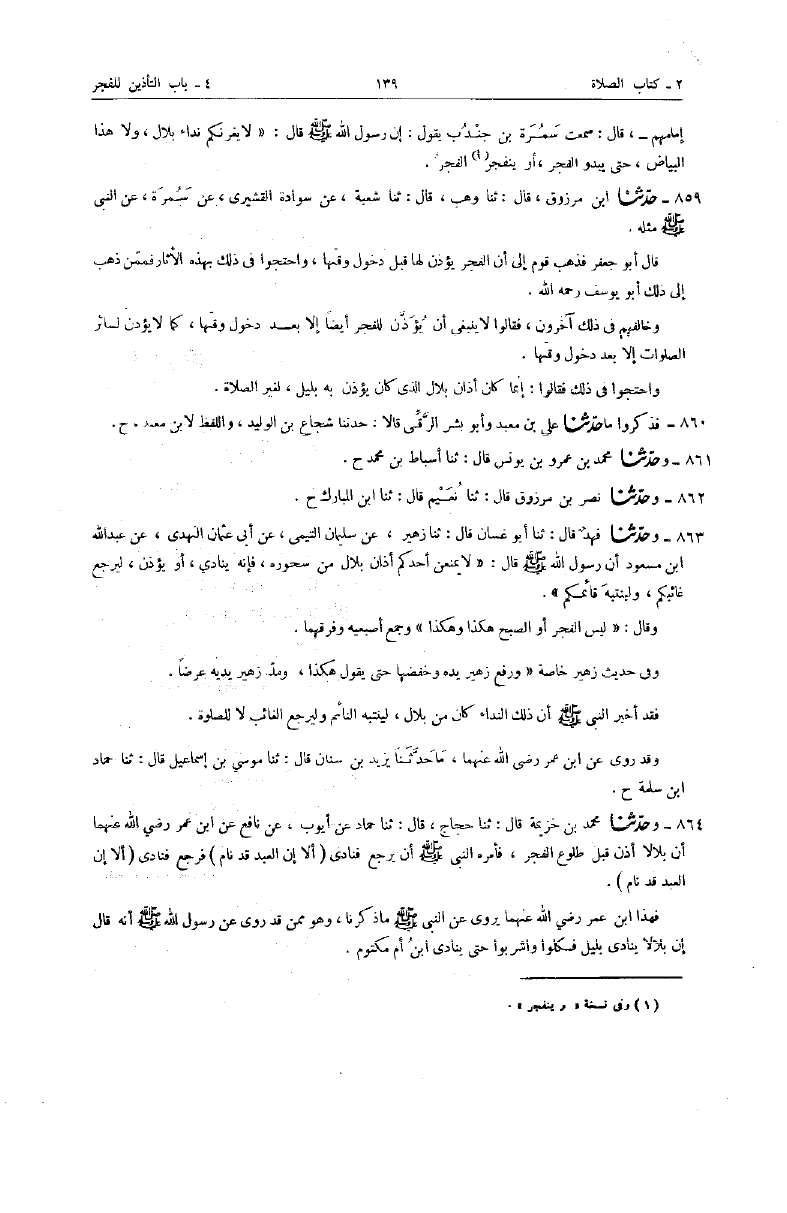 ٢ - كتاب الصلاة ١٣٩ ٤ - باب التأذين للفجر
إمامهم - ، قال : سمعت سَمُرَة بن جندُب يقول : إن رسول الله ﷺ قال : « لايغرنكم نداء بلال ، ولا هذا
البياض ، حتى يبدو الفجر ، أو ينفجر(١) الفجر .
٨٥٩ - حدّثنا ابن مرزوق ، قال : ثنا وهب ، قال : ثنا شعبة ، عن سوادة القشيرى ، عن سَمُرة ، عن النبي
ﷺ مثله .
قال أبو جعفر فذهب قوم إلى أن الفجر يؤذن لها قبل دخول وقتها ، واحتجوا فى ذلك بهذه الأثار فممّن ذهب
إلى ذلك أبو يوسف رحمه الله .
وخالفهم فى ذلك آخرون ، فقالوا لاينبغى أن يُؤَذَّن للفجر أيضاً إلا بعد دخول وقتها ، كما لايؤذن لسائر
الصلوات إلا بعد دخول وقتها .
واحتجوا فى ذلك فقالوا : إنما كان أذان بلال الذى كان يؤذن به بليل ، لغير الصلاة .
٨٦٠ - فذكروا ماحدّثنا علي بن معبد وأبو بشر الرَّقّى قالا : حدثنا شجاع بن الوليد ، واللفظ لابن معبد . ح .
٨٦١ - وحدّثنا محمد بن عمرو بن يونس قال : ثنا أسباط بن محمد ح .
٨٦٢ - وحدّثنا نصر بن مرزوق قال : ثنا نُعَيْم قال : ثنا ابن المبارك ح .
٨٦٣ - وحدّثنا فهد قال : ثنا أبو غسان قال : ثنا زهير ، عن سليمان التيمى ، عن أبى عثمان النهدى ، عن عبدالله
ابن مسعود أن رسول الله ﷺ قال : « لايمنعن أحدكم أذان بلال من سحوره ، فإنه ينادي ، أو يؤذن ، ليرجع
غائبكم ، ولينتبه قائمكم » .
وقال : « ليس الفجر أو الصبح هكذا وهكذا » وجمع أصبعيه وفرقهما .
وفى حديث زهير خاصة « ورفع زهير يده وخفضها حتى يقول هكذا ، ومدّ زهير يديه عرضاً .
فقد أخبر النبي ﷺ أن ذلك النداء كان من بلال ، لينتبه النائم وليرجع الغائب لا للصلوة .
وقد روى عن ابن عمر رضي الله عنهما ، مَاحدَّثَنا يزيد بن سنان قال : ثنا موسي بن إسماعيل قال : ثنا حماد
ابن سلمة ح .
٨٦٤ - وحدّثنا محمد بن خزيمة قال : ثنا حجاج ، قال : ثنا حماد عن أيوب ، عن نافع عن ابن عمر رضي الله عنهما
أن بلالا أذن قبل طلوع الفجر ، فأمره النبي ﷺ أن يرجع فنادى ( ألا إن العبد قد نام ) فرجع فنادى ( ألا إن
العبد قد نام ) .
فهذا ابن عمر رضي الله عنهما يروى عن النبي ﷺ ماذكرنا ، وهو ممن قد روى عن رسول الله ﷺ أنه قال
إن بلالا ينادى بليل فكلوا واشربوا حتى ينادى ابنُ أم مكتوم .
(١) وفى نسخة « وينفجر » .